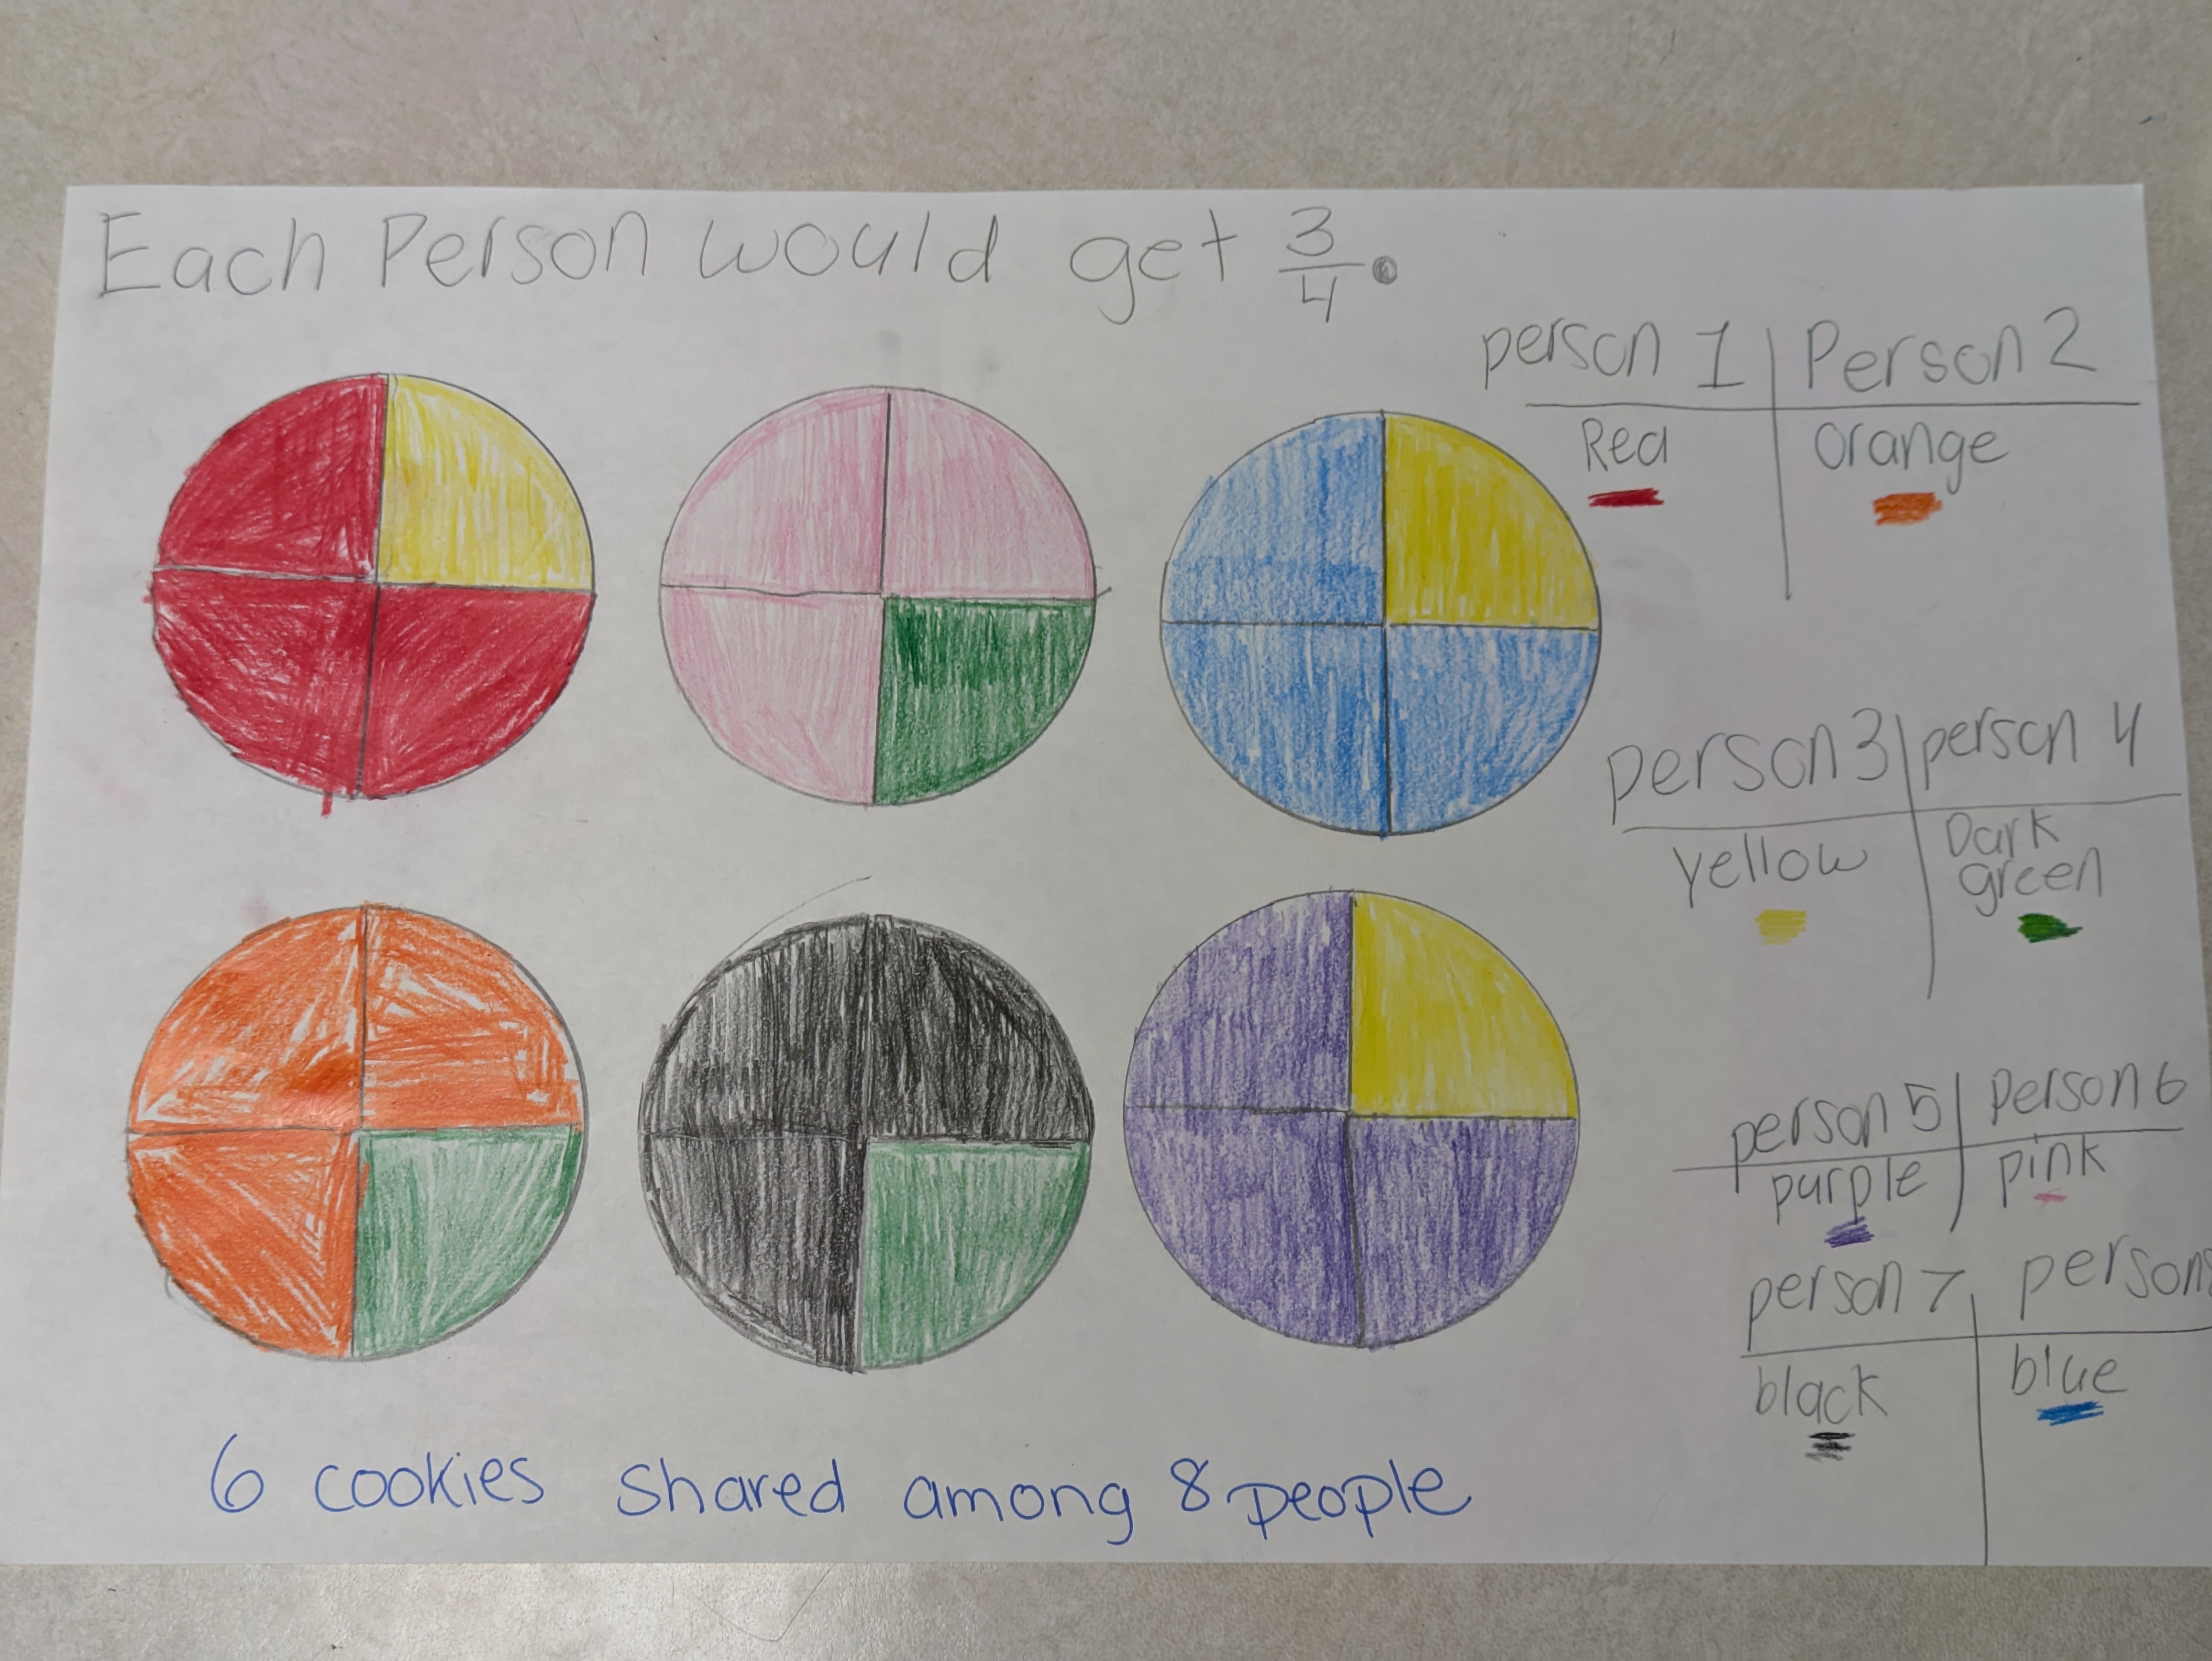 Each Person would get 3/4.
person 1 | Person 2
Red | orange
person 3 | person 4
yellow | Dark green
person 5 | Person 6
purple | pink
person 7 | person
black | blue
6 cookies shared among 8 people